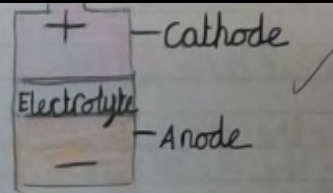 +
Cathode
Electrolyte
Anode
−